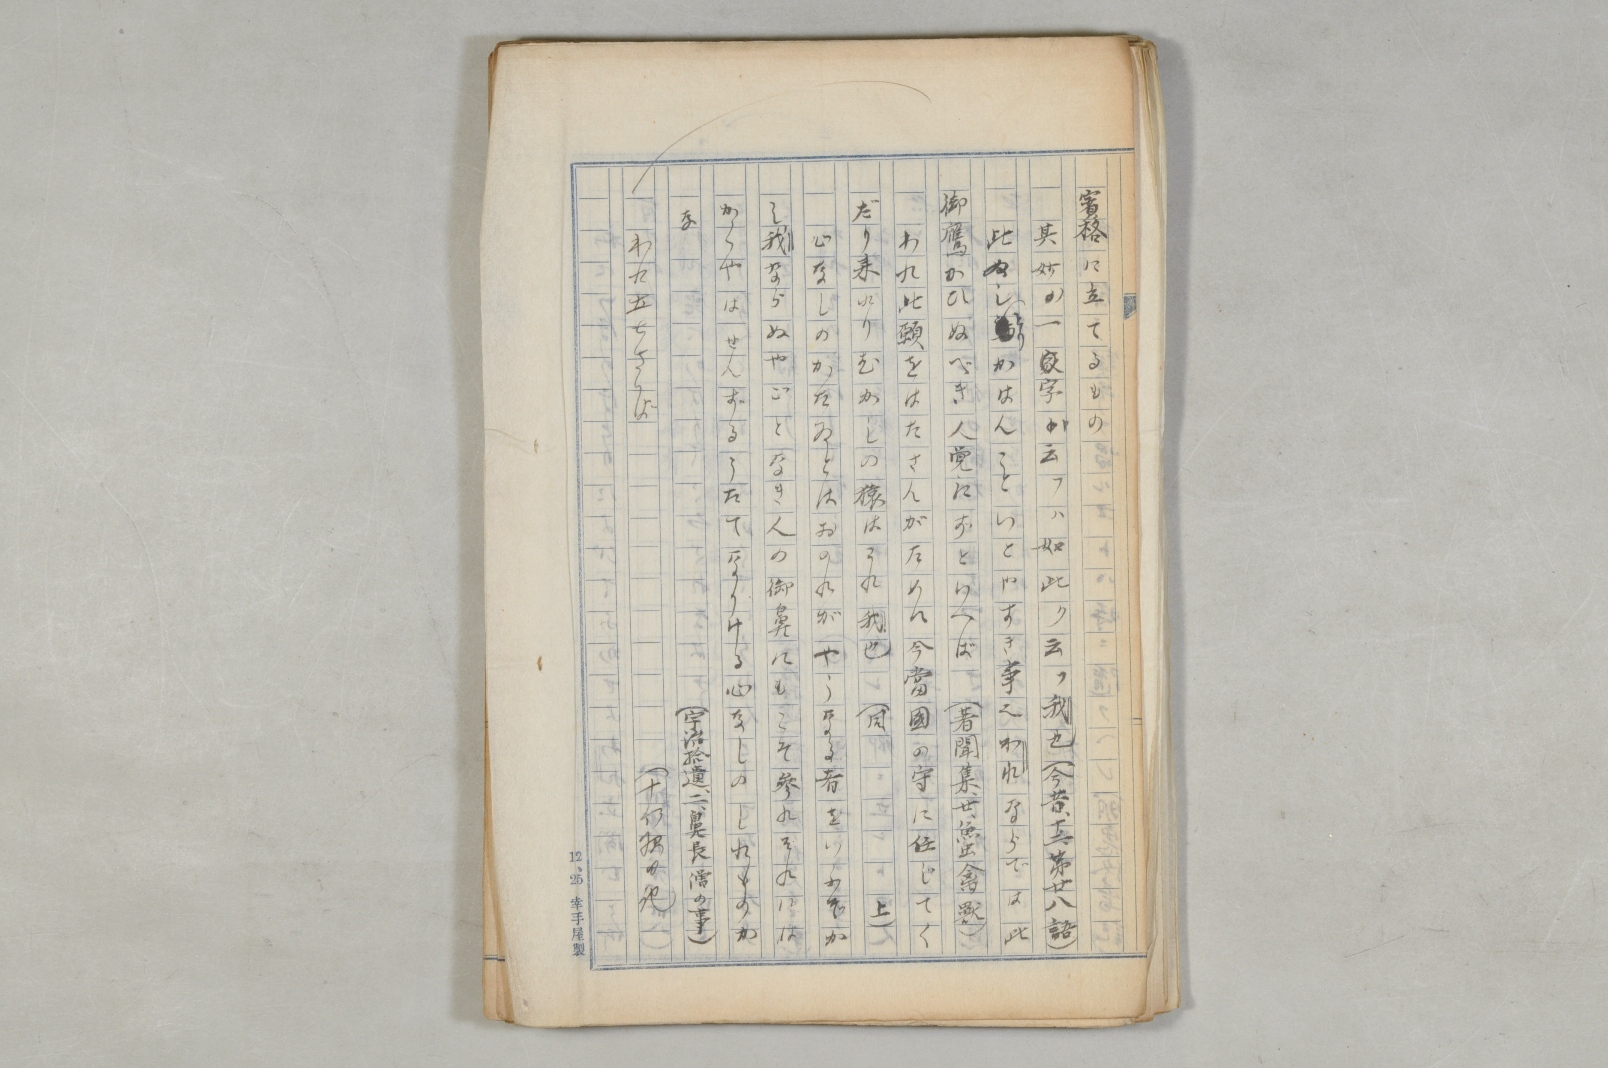 賓格に立てるもの
其妙か一家字か云フハ如此ク云フ我也(今昔、十二、第廿八語)
此ぬしかはんこといとやすき事也われならでは此
御鷹かひぬべき人覚にずといへば(著聞集、廿、魚虫禽獣)
われ此願をはたさんがために今當國の守に任じてく
だり来れりむかしの猿はこれ我也(同上)
心なしのかたゐとはおのれがやうなる者をいふぞか
し我ならぬやごとなき人の御鼻にもこそ參れそれには
かくやはせんずるうたてなりける心なしのしれものか
な(宇治拾遺、二、鼻長僧の事)
12、25 幸手屋製